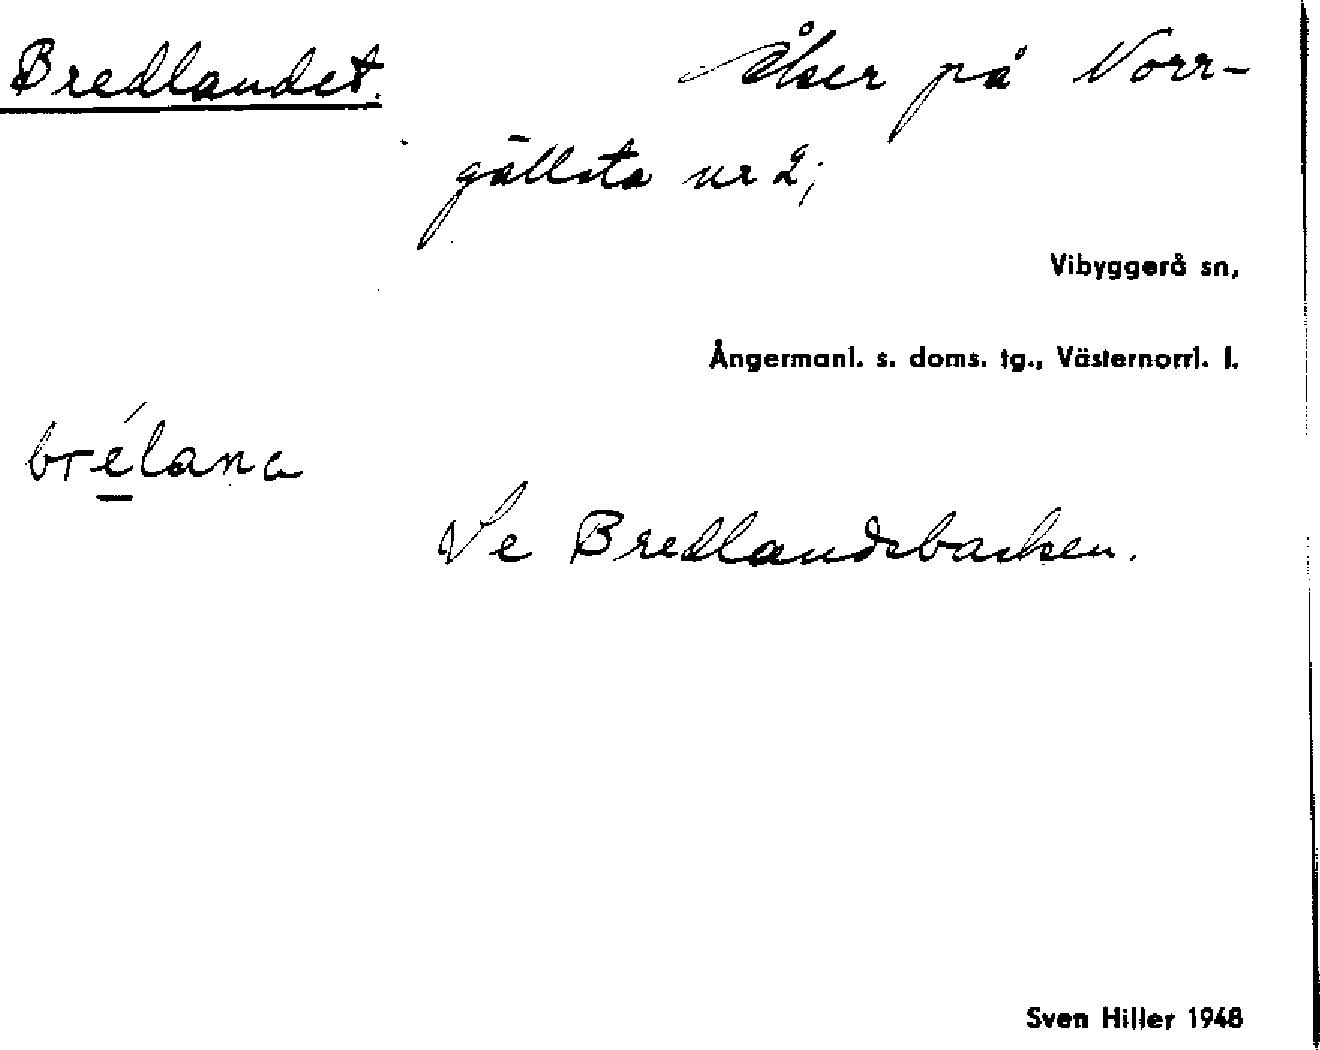 Bredlandet. Åker på Norr-
gällsta nr 2;
Vibyggerå sn,
Ångermanl. s. doms. tg., Västernorrl. l.
brélana
Se Bredlandsbacken.
Sven Hiller 1948